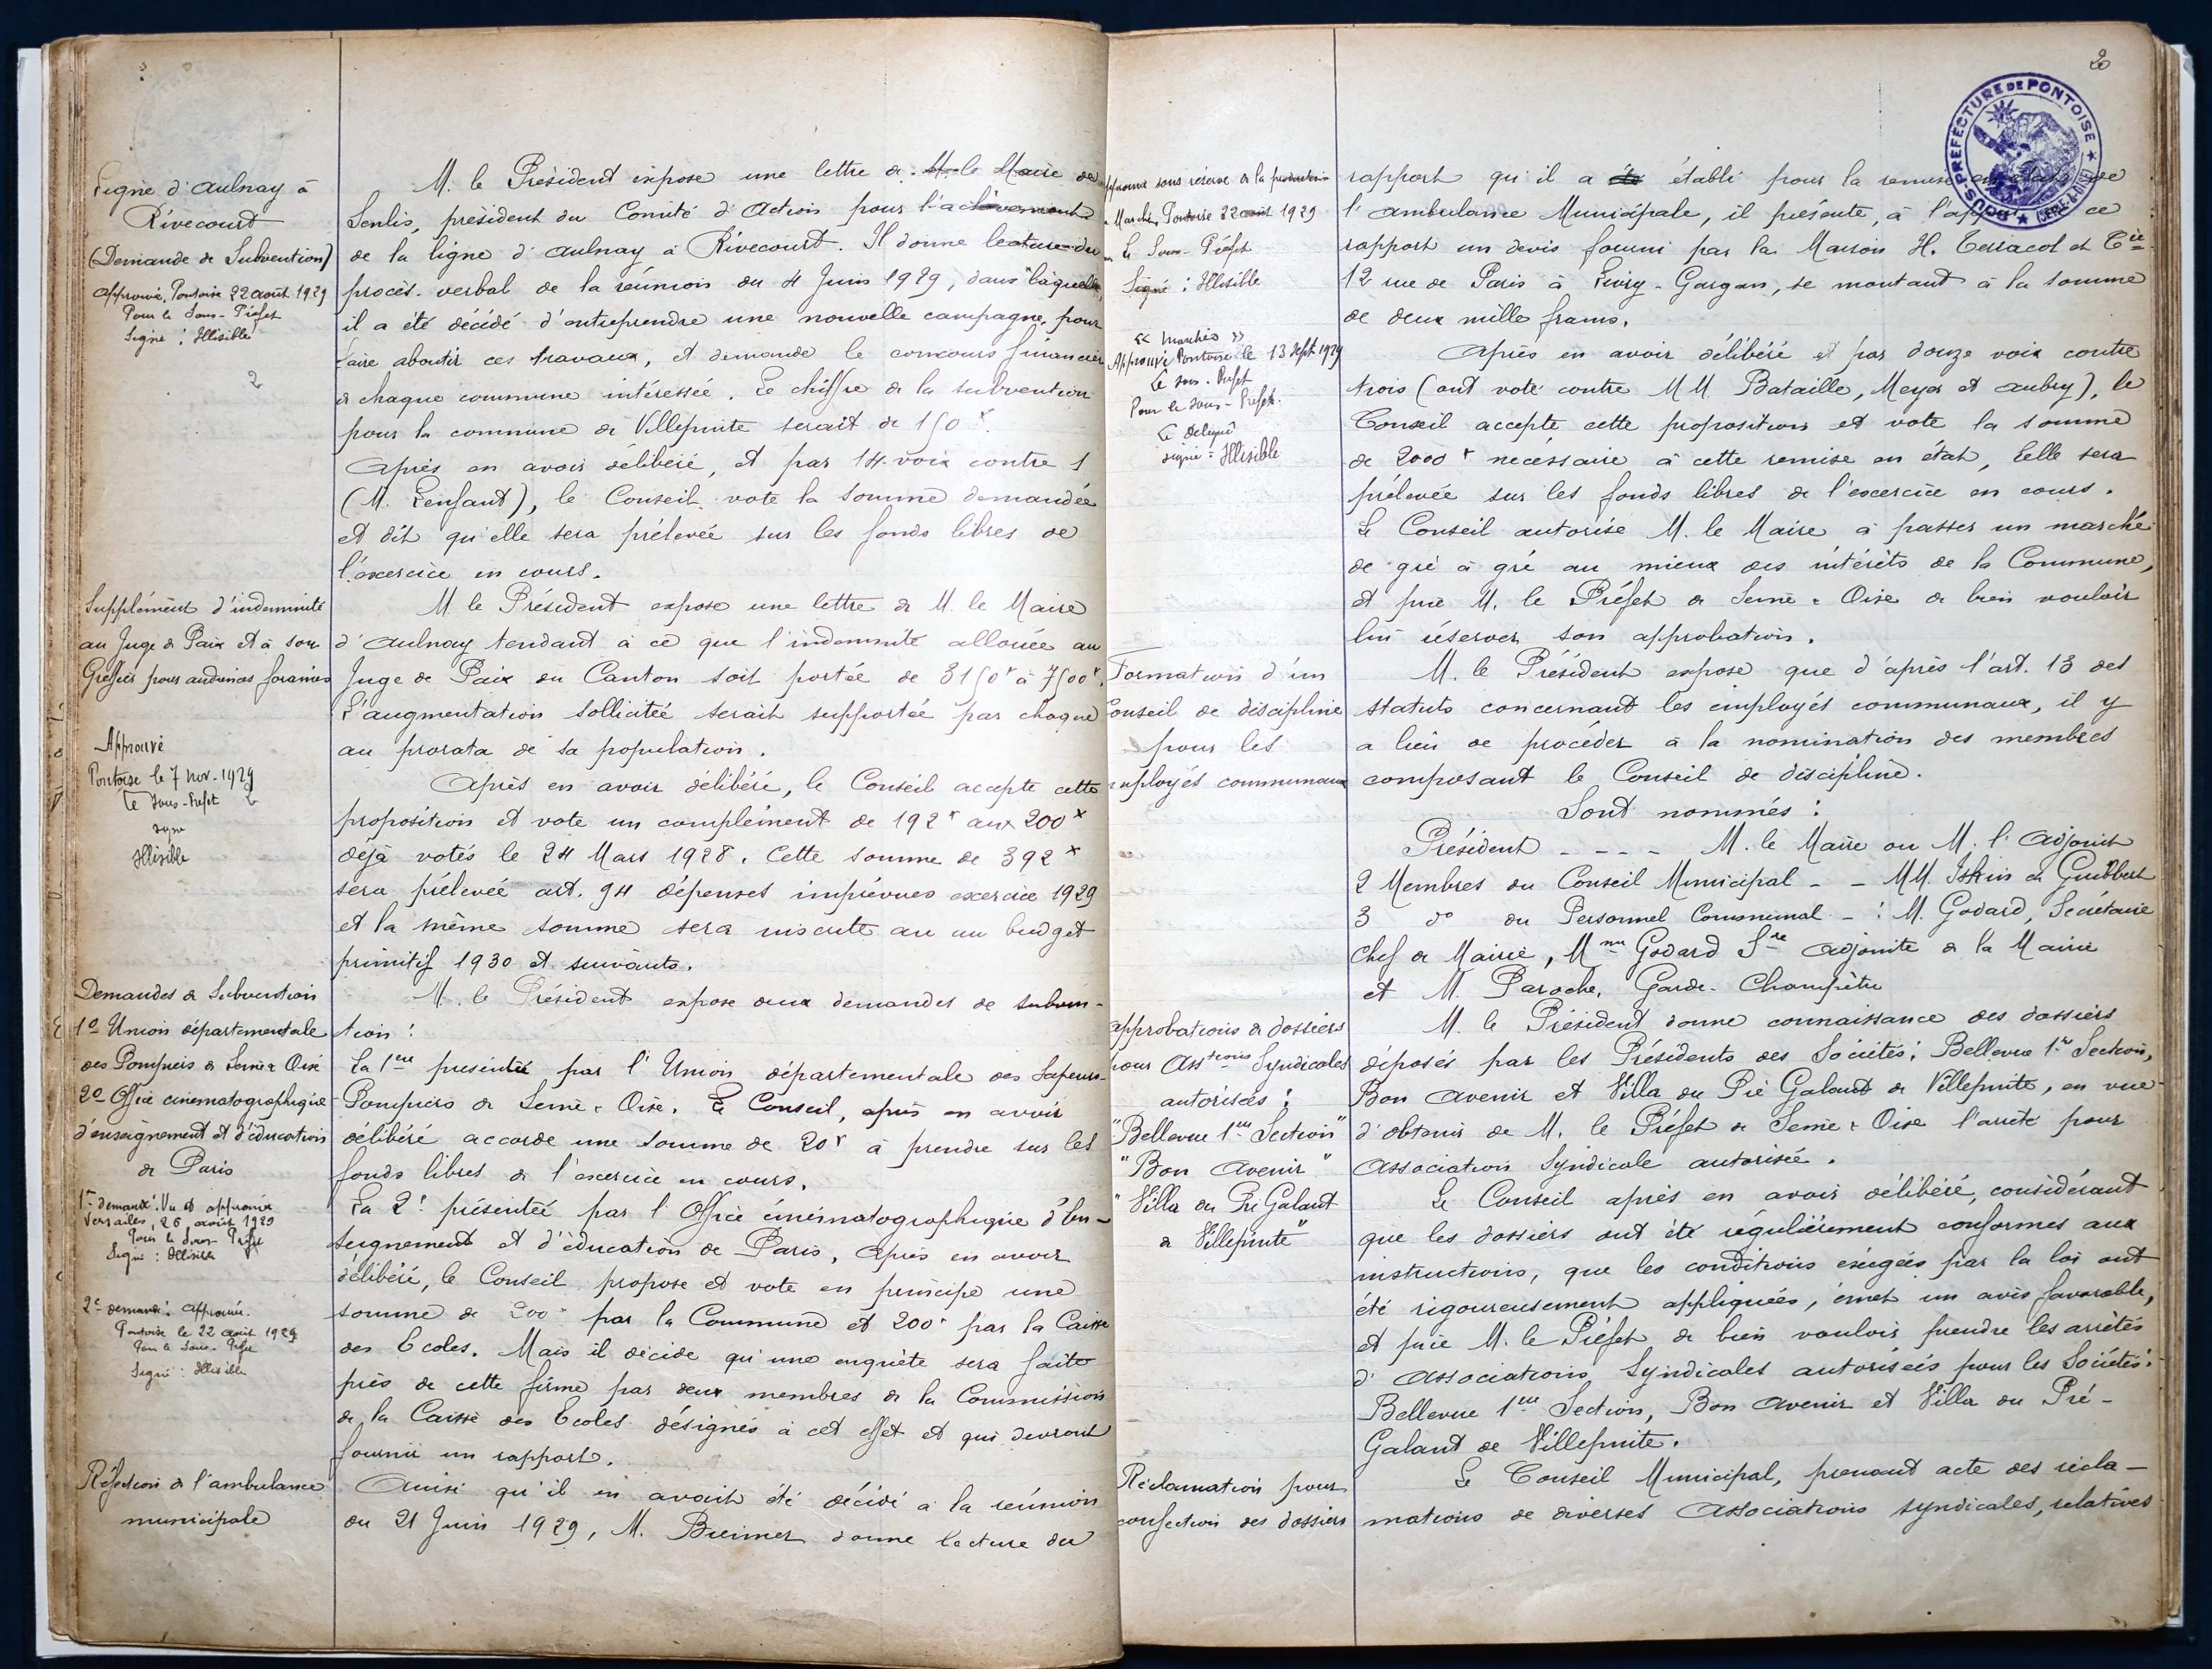 Ligne d'Aulnay à
Rivecourt
(Demande de Subvention)
Approuvé, Pontoise 22 août 1929
Pour le Sous-Préfet
Signé : Illisible
2
M. le Président expose une lettre de M. le Maire de
Senlis, président du Comité d'Action pour l'achèvement
de la ligne d'Aulnay à Rivecourt. Il donne lecture du
procès-verbal de la réunion du 4 Juin 1929, dans laquelle,
il a été décidé d'entreprendre une nouvelle campagne, pour
faire aboutir ces travaux, et demande le concours financier
de chaque commune intéressée. Le chiffre de la subvention
pour la commune de Villepinte serait de 150 f.
Après en avoir délibéré, et par 14 voix contre 1
(M. Lenfant), le Conseil vote la somme demandée
et dit qu'elle sera prélevée sur les fonds libres de
l'exercice en cours.
Supplément d'indemnité
au Juge de Paix et à son
Greffier pour audiences foraines
Approuvé
Pontoise le 7 Nov. 1929
Le Sous-Préfet
signé
Illisible
M le Président expose une lettre de M. le Maire
d'Aulnay tendant à ce que l'indemnité allouée au
Juge de Paix du Canton soit portée de 3150 f à 7500 f.
L'augmentation sollicitée serait supportée par chaque
au prorata de sa population.
Après en avoir délibéré, le Conseil accepte cette
proposition et vote un complément de 192 f aux 200 f
déjà votés le 24 Mars 1928. Cette somme de 392 f
sera prélevée art. 94 dépenses imprévues exercice 1929
et la même somme sera inscrite au au budget
primitif 1930 et suivants.
Demandes de Subvention
1º Union départementale
des Pompiers de Seine & Oise
2º Office cinématographique
d'enseignement et d'éducation
de Paris
1re demande : Vu et approuvé
Versailles, 26 août 1929
Pour le Sous-Préfet
Signé : Illisible
2e demande : Approuvé.
Pontoise le 22 août 1929
Pour le Sous-Préfet
Signé : Illisible
M. le Président expose deux demandes de subven-
tion :
La 1ère présentée par l'Union départementale des Sapeurs-
Pompiers de Seine & Oise. Le Conseil, après en avoir
délibéré accorde une somme de 20 f à prendre sur les
fonds libres de l'exercice en cours.
La 2e présentée par l'Office cinématographique d'En-
seignement et d'éducation de Paris, Après en avoir
délibéré, le Conseil propose et vote en principe une
somme de 200 f par la Commune et 200 f par la Caisse
des Ecoles. Mais il décide qu'une enquête sera faite
près de cette firme par deux membres de la Commission
de la Caisse des Ecoles désignés à cet effet et qui devront
fournir un rapport.
Réfection de l'ambulance
municipale
Ainsi qu'il en avait été décidé à la réunion
du 21 Juin 1929, M. donne lecture du
20
SOUS-PRÉFECTURE DE PONTOISE
Approuvé sous réserve de la production
Marché, Pontoise 22 août 1929
Le Sous-Préfet
Signé : Illisible
"Marchés"
Approuvé Pontoise le 13 Sept 1929
Le Sous-Préfet
Pour le Sous-Préfet.
Le délégué
signé : Illisible
rapport qu'il a été établi pour la remise en état de
l'ambulance Municipale, il présente, à l'appui de ce
rapport un devis fourni par la Maison H. Terracol et Cie
12 rue de Paris à Livry-Gargan, se montant à la somme
de deux mille francs.
Après en avoir délibéré et par douze voix contre
trois (ont voté contre MM. Bataille, Meyer et Aubry), le
Conseil accepte cette proposition et vote la somme
de 2000 f nécessaire à cette remise en état, Celle sera
prélevée sur les fonds libres de l'exercice en cours.
Le Conseil autorise M. le Maire à passer un marché
de gré à gré au mieux des intérêts de la Commune,
et prie M. le Préfet de Seine & Oise de bien vouloir
lui réserver son approbation.
Formation d'un
Conseil de discipline
pour les
employés communaux
M. le Président expose que d'après l'art. 13 des
statuts concernant les employés communaux, il y
a lieu de procéder à la nomination des membres
composant le Conseil de discipline.
Sont nommés :
Président - - - - M. le Maire ou M. l'Adjoint
2 Membres du Conseil Municipal - - MM. et Guibbert
3 dº du Personnel Communal - : M. Godard, Secrétaire
chef de Mairie, Mme Godard Sre adjointe de la Mairie
et M. Paroche, Garde-Champêtre
Approbations de dossiers
pour Asstions Syndicales
autorisées :
"Bellevue 1ère Section"
"Bon Avenir"
"Villa du Pré Galant
de Villepinte"
M. le Président donne connaissance des dossiers
déposés par les Présidents des Sociétés : Bellevue 1re Section,
Bon Avenir et Villa du Pré Galant de Villepinte, en vue
d'obtenir de M. le Préfet de Seine & Oise l'arrêté pour
Association Syndicale autorisée.
Le Conseil après en avoir délibéré, considérant
que les dossiers ont été régulièrement conformes aux
instructions, que les conditions exigées par la loi ont
été rigoureusement appliquées, émet un avis favorable,
et prie M. le Préfet de bien vouloir prendre les arrêtés
d'Associations Syndicales autorisées pour les Sociétés :
Bellevue 1ère Section, Bon Avenir et Villa du Pré-
Galant de Villepinte.
Réclamation pour
confection des dossiers
Le Conseil Municipal, prenant acte des récla-
mations de diverses Associations syndicales, relatives